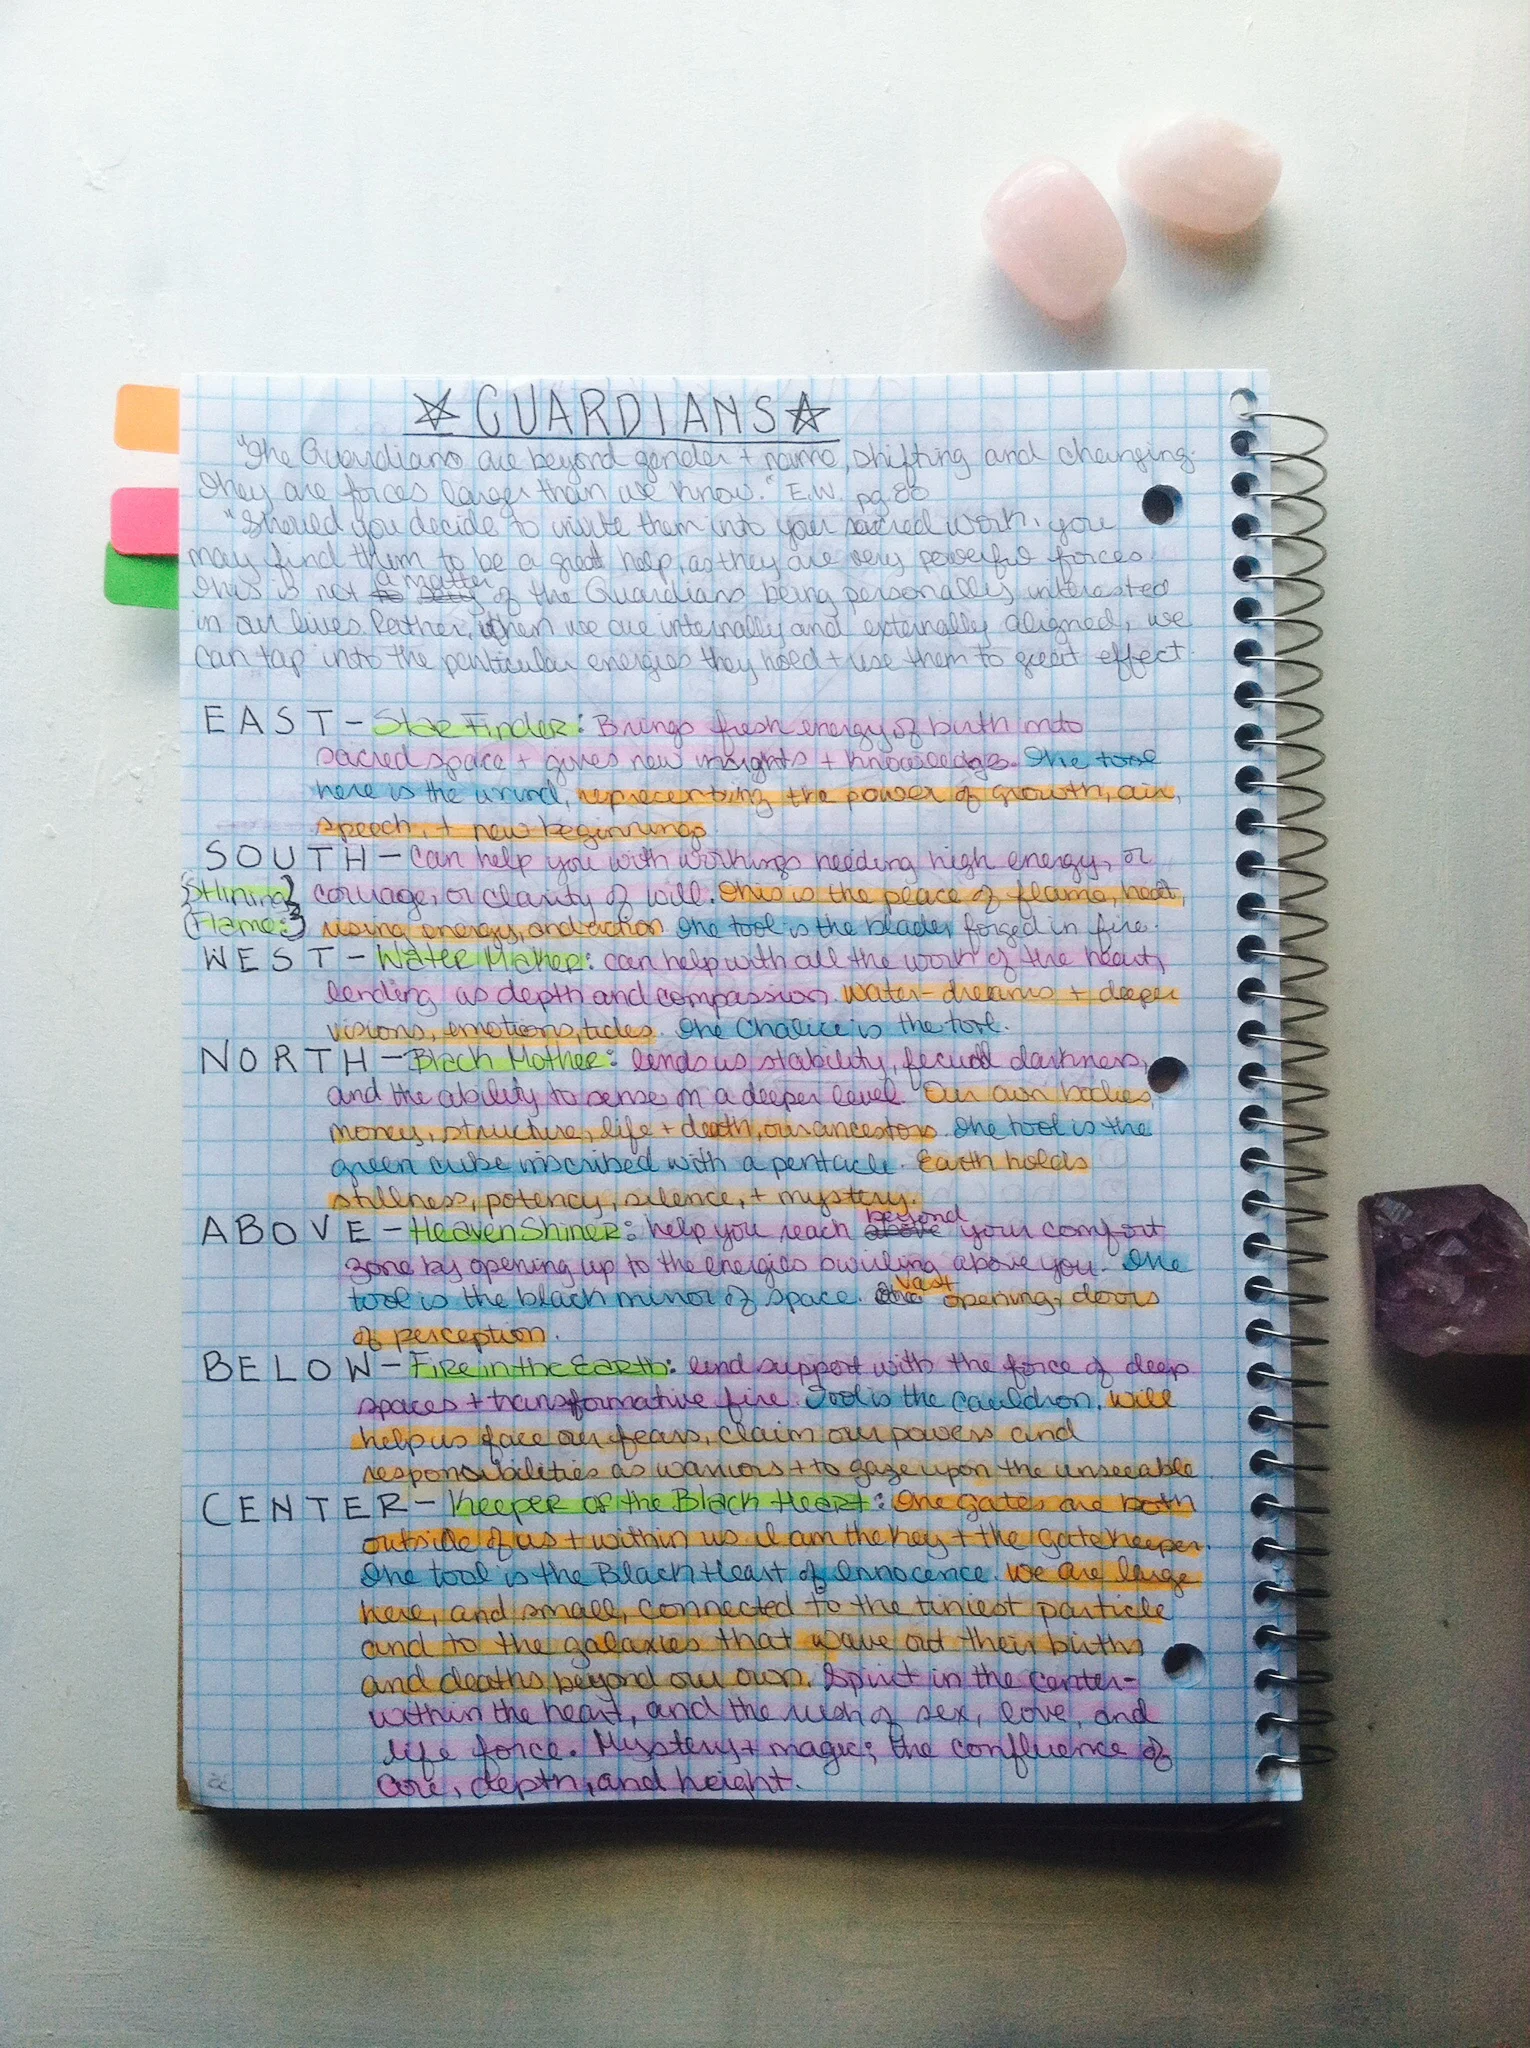 ☆ GUARDIANS ☆
"The Guardians are beyond gender + name, shifting and changing.
They are forces larger than we know." E.W. pg. 80
"Should you decide to invite them into your sacred work, you
may find them to be a great help, as they are very powerful forces.
This is not a matter of the Guardians being personally interested
in our lives. Rather, when we are internally and externally aligned, we
can tap into the particular energies they hold + use them to great effect.
EAST - Star Finder: Brings fresh energy of birth into
sacred space + gives new insights + knowledge. The tool
here is the wand, representing the power of growth, air,
speech, + new beginnings.
SOUTH - can help you with workings needing high energy, or
{Shining} courage, or clarity of will. This is the place of flame, heat,
{Flame:} rising energy, and action. The tool is the blade, forged in fire.
WEST - Water Maker: can help with all the work of the heart,
lending us depth and compassion. Water - dreams + deeper
visions, emotions, tides. The Chalice is the tool.
NORTH - Black Mother: lends us stability, fecund darkness,
and the ability to sense on a deeper level. Our own bodies,
money, structure, life + death, our ancestors. The tool is the
green cube inscribed with a pentacle. Earth holds
stillness, potency, silence, + mystery.
ABOVE - Heaven Shiner: help you reach beyond your comfort
zone by opening up to the energies swirling above you. The
tool is the black mirror of space. Vast opening, doors
of perception.
BELOW - Fire in the Earth: lend support with the force of deep
spaces + transformative fire. Tool is the cauldron. Will
help us face our fears, claim our powers and
responsibilities as warriors + to gaze upon the unseeable.
CENTER - Keeper of the Black Heart: The gates are both
outside of us + within us. I am the key + the gatekeeper.
The tool is the Black Heart of Innocence. We are large
here, and small, connected to the tiniest particle
and to the galaxies that wave out their births
and deaths beyond our own. Spirit in the center -
within the heart, and the rush of sex, love, and
life force. Mystery + magic; the confluence of
core, depth, and height.